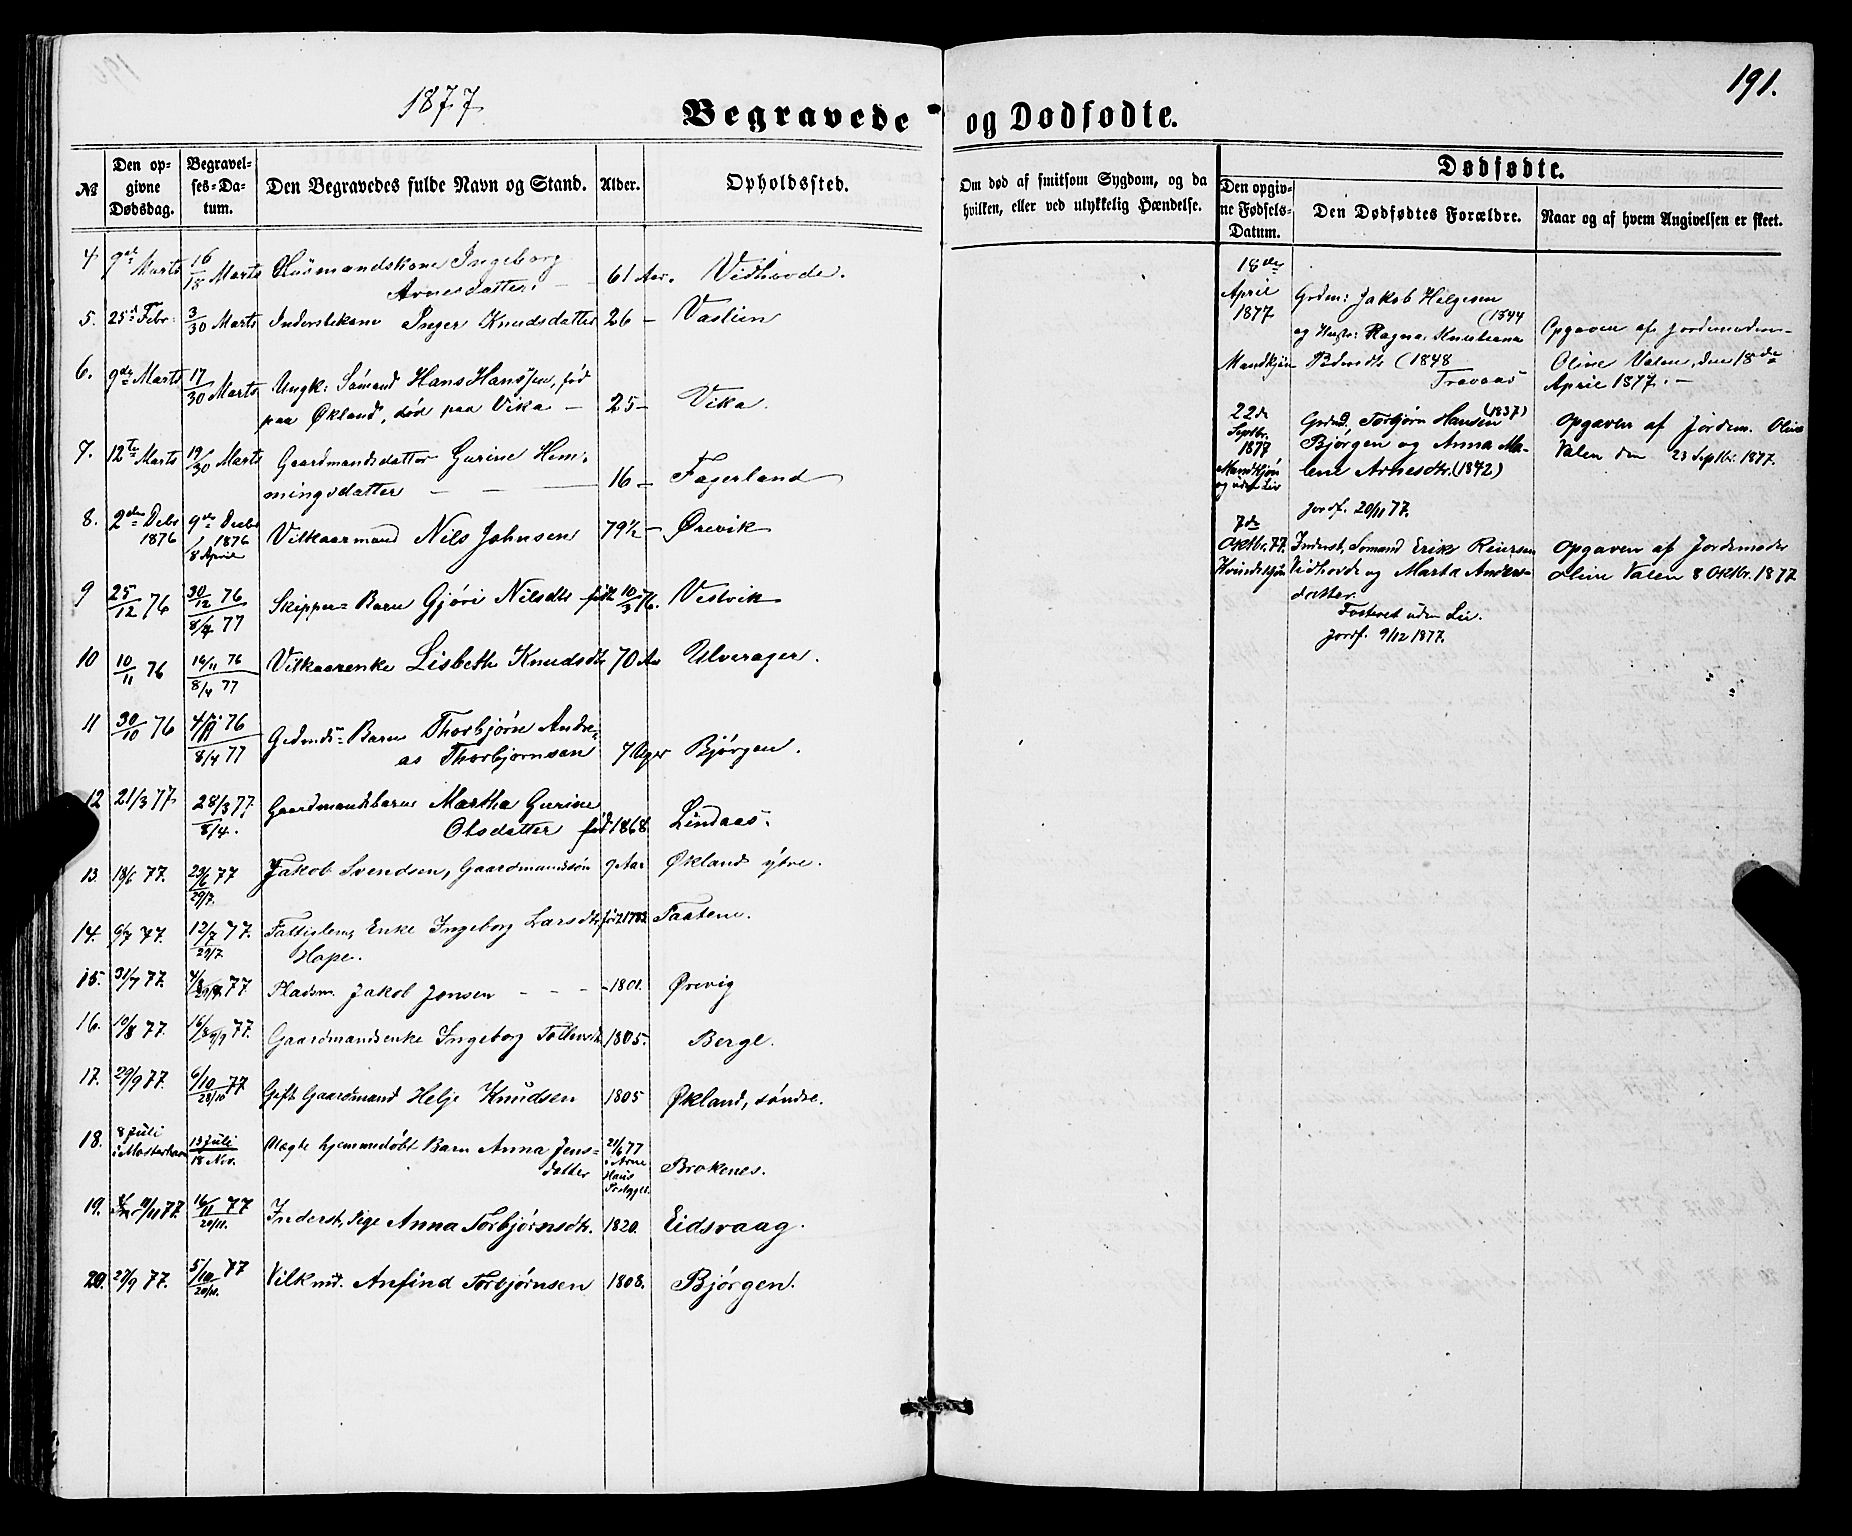 191.
1877.
Begravede og Dødfødte.
№ Den opgivne Dødsdag. Begravelses-Datum. Den Begravedes fulde Navn og Stand. Alder. Opholdssted.
Om død af smitsom Sygdom, og da hvilken, eller ved ulykkelig Hændelse.
Dødfødte.
Den opgivne Fødsels-Datum. Den Dødfødtes Forældre. Naar og af hvem Angivelsen er skeet.
4. 9de Marts 16/18 Marts Huusmandskone Ingeborg
Arnesdatter. 61 Aar. Vidhovde.
5. 25de Febr: 3/30 Marts Inderstekone Inger Knudsdatter 26 — Vaslien
6. 9de Marts 17/30 Marts Ungk: Sömand Hans Hansen, fød
paa Økland, död paa Vika — 25 — Vika.
7. 12te Marts 19/30 Marts Gaardmandsdatter Gurine Hem-
mingsdatter — — — 16 — Fagerland
8. 2den Debr 1876 9de Decbr 1876 / 8 April Vilkaarmand Nils Johnsen 79½ — Ørevik
9 25/12 76 30/12 76 8/4 77 Skipper= Barn Gjøri Nilsdtr født 10/3 76. Vestvik
10 10/11 76 16/11 76 8/4 77 Vilkaarenke Lisbeth Knudsdtr 70 Aar Ulverager.
11 30/10 76 4/11 76 8/4 77 Gdmds= Barn Thorbjørn Andre-
as Thorbjørnsen 7 Uger Bjørgen.
12 21/3 77. 28/3 77. 8/4. Gaardmandsbarn Martha Gurine
Olsdatter fød 1868. Lindaas.
13. 18/6 77. 23/6 77 29/7. Jakob Svendsen, Gaardmandssøn 9 Aar Økland ytre.
14. 6/7 77. 12/7 77. 29/7. Fattiglem, Enke Ingeborg Larsdtr
Hope. født 1783. Taatene.
15. 31/7 77. 4/8 77 Pladsm. Jakob Jonsen - - - 1801. Ørevig
16. 10/8 77. 16/8 77. 9/9 Gaardmandsenke Ingeborg 1805. Berge.
17. 29/9 77. 6/10 77 28/10 Gift Gaardmand Helje Knudsen 1805 Økland, söndre.
18. 8 Juli i Mosterhavn 13 Juli 18 Nov. Ægte hjemmedøbt Barn Anna Jens-
datter 21/6 77 i Arne Haus Brokenes.
19. 9/11 77. 16/11 77 20/11. Inderst, Pige Anna Torbjörnsdtr. 1820. Eidsvaag.
20. 27/9 77. 5/10 77 20/11. Vilk.md. Anfind Torbjørnsen 1808. Bjørgen.
18de
April
1877
Mandkjøn
Grdm: Jakob Helgesen
(1844
og Hustr: Ragna Kristiane
Pedersdtr (1848
Travaas
Opgaven af Jordemoderen
Oline Valen, den 18de
April 1877. —
22de
Septbr.
1877
Mandkjön
og uden Liv
Grdmd. Torbjørn Hansen (1837)
Bjørgen og Anna Ma-
lene Arnesdtr. (1842)
Jordf. 20/11 77.
Opgaven af Jordem. Oline
Valen den 23 Septbr. 1877.
7de
Oktbr. 77.
Kvindekjön
Inderst, Sömand Erik Reiersen
Vidhovde og Marta Anders-
dotter.
Fosteret uden Liv.
Jordf. 9/12 1877.
Opgaven af Jordemoder
Oline Valen 8 Oktbr. 1877